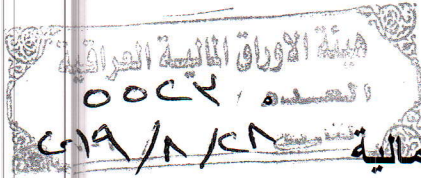 هيئة الاوراق المالية العراقية
العدد ٥٥٢٧
٢٠١٩/٨/٢٨
مالية